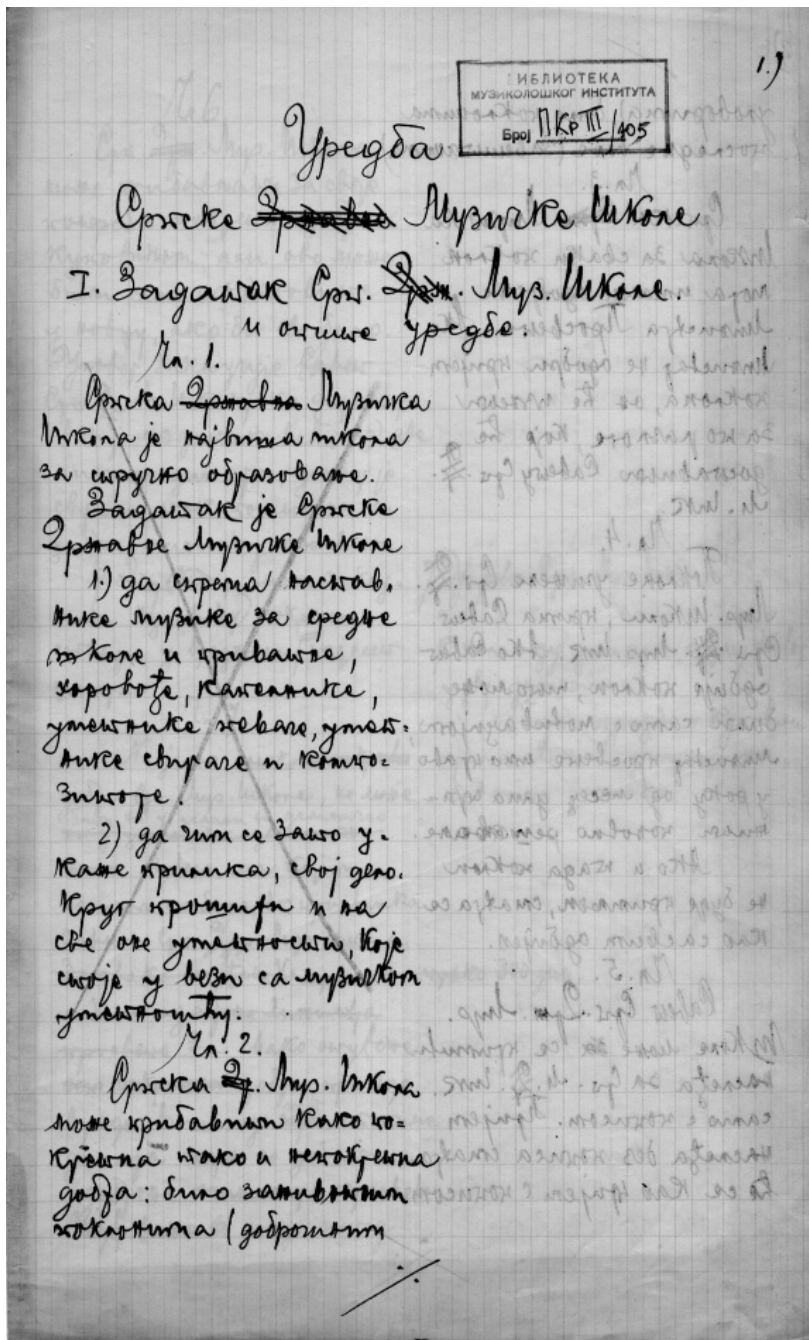 1.)
БИБЛИОТЕКА
МУЗИКОЛОШКОГ ИНСТИТУТА
Број ПКр III/405
Уредба
Српске Државне Музичке Школе
I. Задатак Срп. Држ. Муз. Школе.
и опште уредбе.
Чл. 1.
Српска Државна Музичка
Школа је највиша школа
за стручно образовање.
Задатак је Српске
Државне Музичке Школе
1.) да спрема настав-
нике музике за средње
школе и приватне,
хоровође, капелнике,
уметнике певаче, умет-
нике свираче и компо-
зиторе.
2) да чим се зато у-
каже прилика, свој дело-
круг прошири и на
све оне уметности, које
стоје у вези са музичком
уметношћу.
Чл. 2.
Српска Др. Муз. Школа
може прибавити како по-
кретна тако и непокретна
добра: било
поклонима (доброчиним